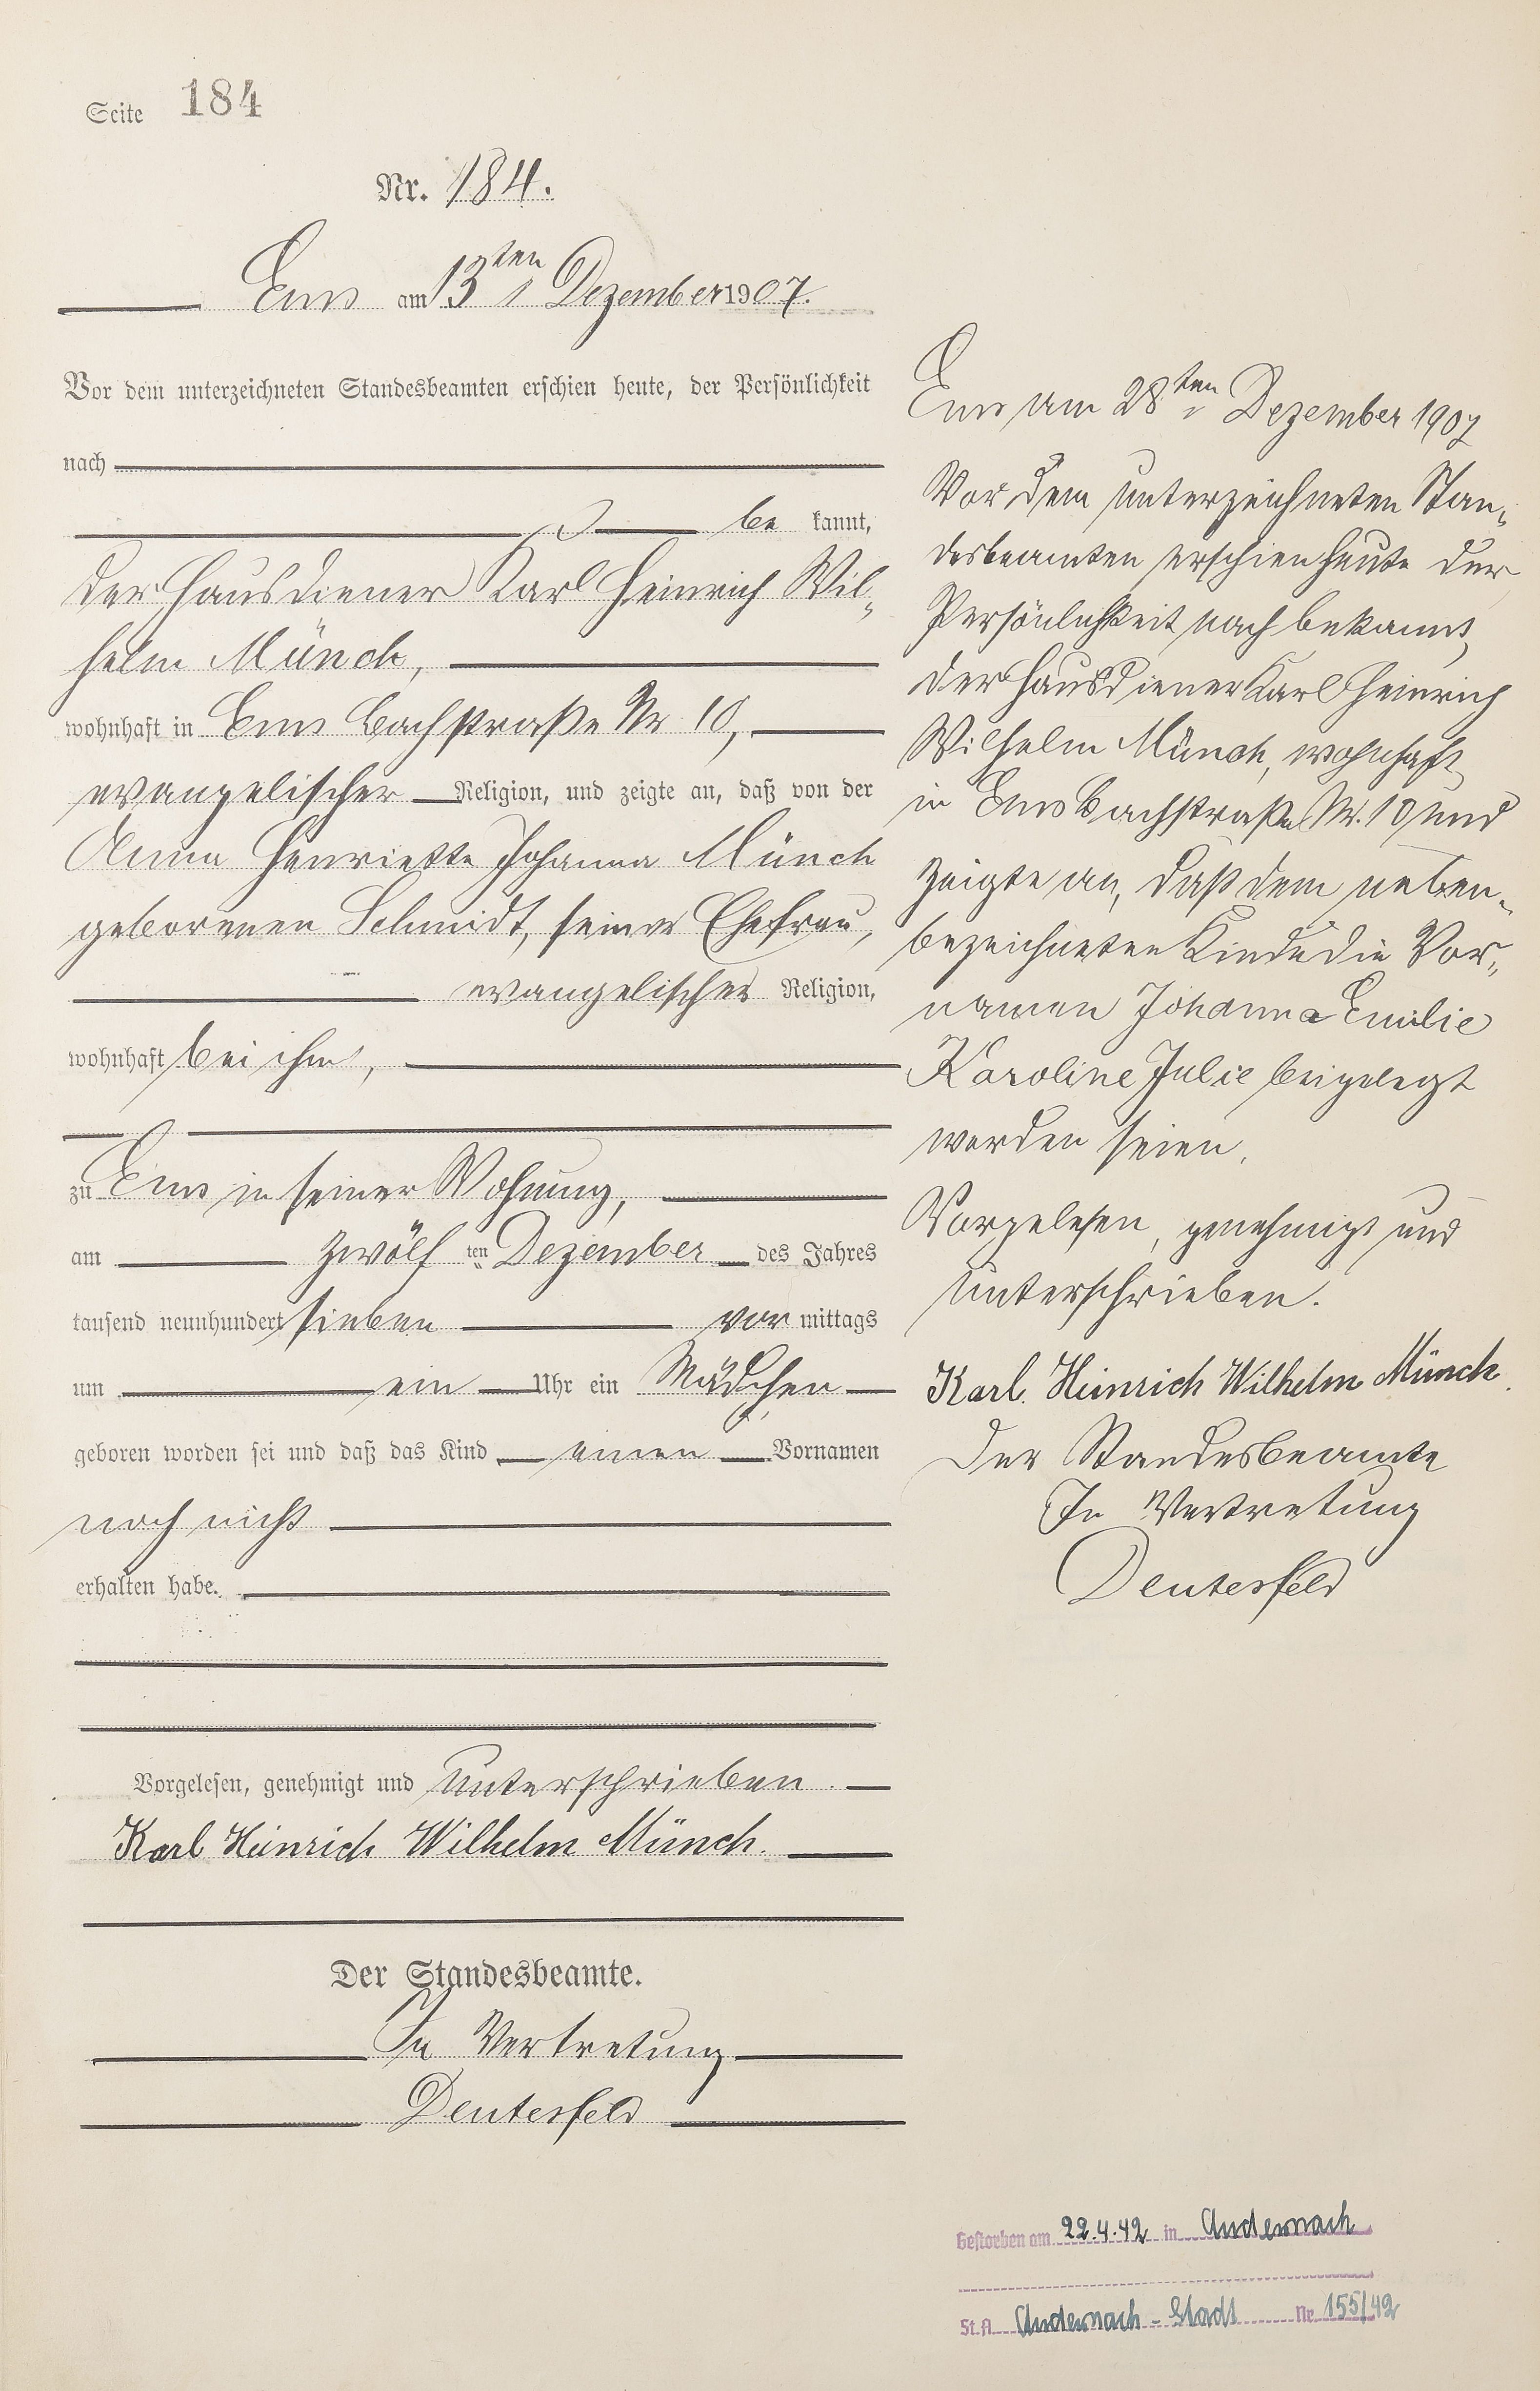 Seite 184
Nr. 184.
Ems am 13ten Dezember 1907.
Vor dem unterzeichneten Standesbeamten erschien heute, der Persönlichkeit
nach
be kannt,
der Hausdiener Karl Heinrich Wil-
helm Münch,
wohnhaft in Ems Bachstraße Nr 10,
evangelischer Religion, und zeigte an, daß von der
Anna Henriette Johanna Münch
geborenen Schmidt, seiner Ehefrau,
evangelischer Religion,
wohnhaft bei ihm,
zu Ems in seiner Wohnung,
am zwölf ten Dezember des Jahres
tausend neunhundert sieben vor mittags
um ein Uhr ein Mädchen
geboren worden sei und daß das Kind einen Vornamen
noch nicht
erhalten habe.
Vorgelesen, genehmigt und unterschrieben.
Karl Heinrich Wilhelm Münch.
Der Standesbeamte.
In Vertretung
Deutesfeld
Ems am 28ten Dezember 1907
Vor dem unterzeichneten Stan-
desbeamten erschien heute der
Persönlichkeit nach bekannt,
der Hausdiener Karl Heinrich
Wilhelm Münch, wohnhaft
in Ems Bachstraße Nr. 10 und
zeigte an, daß dem neben-
bezeichneten Kinde die Vor-
namen Johanna Emilie
Karoline Julie beigelegt
worden seien.
Vorgelesen, genehmigt und
unterschrieben.
Karl Heinrich Wilhelm Münch.
Der Standesbeamte
In Vertretung
Deutesfeld
Gestorben am 22.4.42 in Andernach
St.A. Andernach-Stadt Nr. 155/42